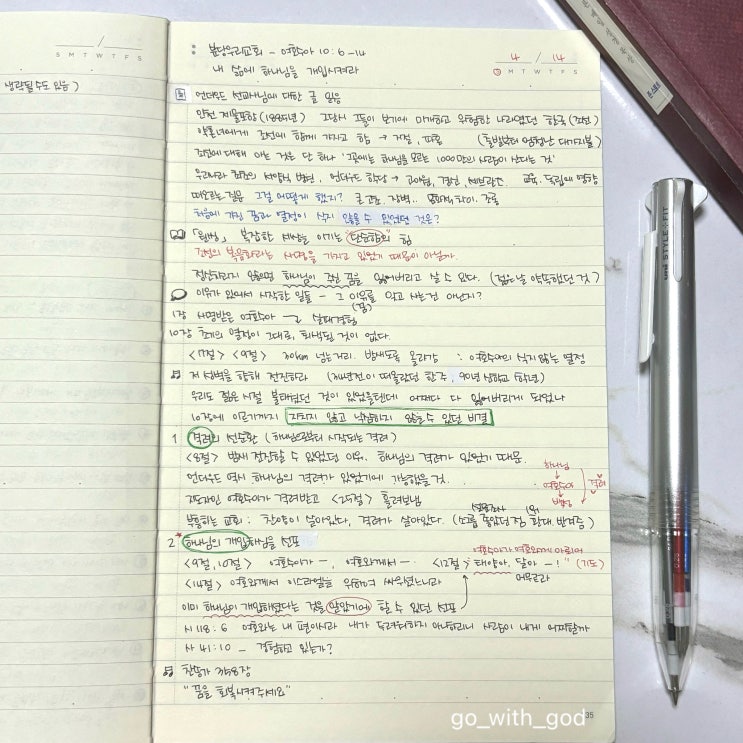 S M T W T F S
생략될수도 있음)
분당우리교회 - 여호수아 10:6-14
내 삶에 하나님을 개입시켜라
4 / 14
S M T W T F S
언더우드 선교사님에 대한 글 읽음
인천 제물포항 (1885년) 그당시 그들이 보기에 미개하고 위험한 나라였던 한국 (조선)
약혼녀에게 조선에 함께 가자고 함 → 거절, 파혼 (출발부터 엄청난 대가지불)
조선에 대해 아는 것은 단 하나 '그곳에는 하나님을 모르는 1000만의 사람이 산다는 것'
우리나라 최초의 서양식 병원, 언더우드 학당 → 고아원, 경신, 세브란스 교육, 독립에 영향
떠오르는 질문 그걸 어떻게 했지? 곤고함, 장벽.. 문화의 차이. 조롱
처음에 가진 꿈과 열정이 식지 않을 수 있었던 것은?
「원씽」 복잡한 세상을 이기는 "단순함의 힘
조선의 복음화라는 사명을 가지고 있었기 때문이 아닐까.
정신차리지 않으면 하나님이 주신 꿈을 잃어버리고 살 수 있다. (젊은날 약속했던 것)
이유가 있어서 시작한 일들 - 그 이유를 잊고 사는건 아닌지?
(꿈)
1장 사명받은 여호수아 → 실패경험
10장 초기의 열정이 그대로, 퇴색된 것이 없다.
<7절> <9절> 30km 넘는거리. 밤새도록 올라감 : 여호수아의 식지않는 열정
저 성벽을 향해 전진하라 (34년전이 떠올랐던 한 주, 90년 신학교 1학년)
우리도 젊은 시절 불태웠던 것이 있었을텐데 어쩌다 다 잃어버리게 되었나
10장에 이르기까지 지치지 않고 낙심하지 않을수 있던 비결
1 격려의 선순환 (하나님으로부터 시작되는 격려)
<8절> 밤새 진군할 수 있었던 이유. 하나님의 격려가 있었기 때문.
언더우드 역시 하나님의 격려가 있었기에 가능했을 것.
지도자인 여호수아가 격려받고 <25절> 흘려보냄
하나님
여호수아
백성
격려
부흥하는 교회 : 찬양이 살아있다, 격려가 살아있다.
2 * 하나님의 개입하심을 선포
여호수아가 여호와께 아뢰어
<9절, 10절> 여호수아가 -, 여호와께서 - <12절> "태양아, 달아 -!" (기도)
머무르라
<14절> 여호와께서 이스라엘을 위하여 싸우셨느니라
이미 하나님이 개입하셨다는 것을 알았기에 할 수 있던 선포
시 118:6 여호와는 내 편이시라 내가 두려워하지 아니하리니 사람이 내게 어찌할까
사 41:10 - 경험하고 있는가?
찬송가 358장
"꿈을 회복시켜주세요"
35
go_with_god
uni STYLE FIT